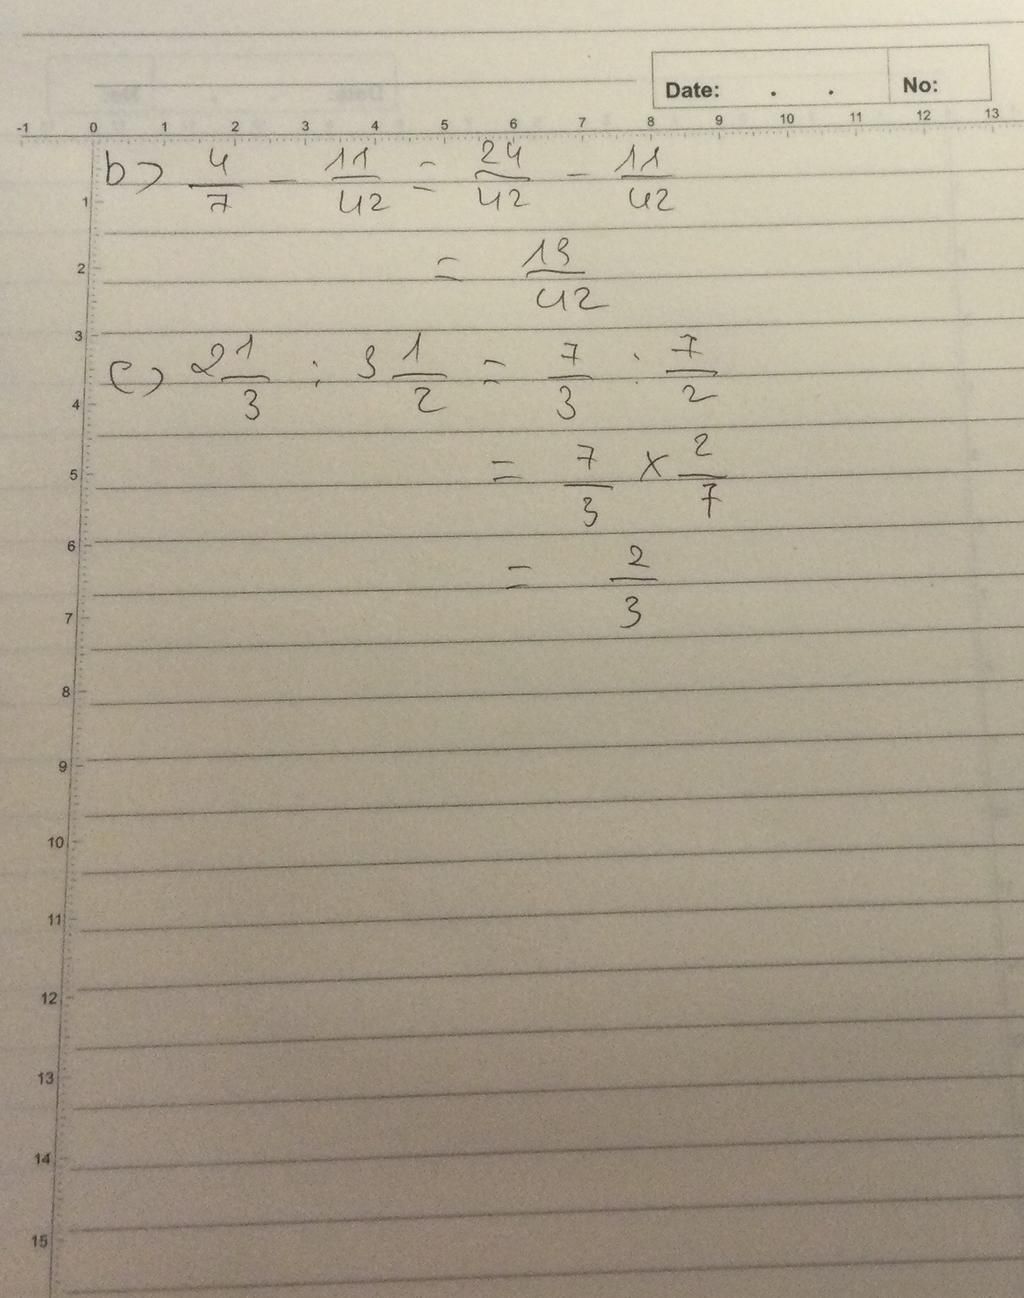 Date: . . No:
-1 0 1 2 3 4 5 6 7 8 9 10 11 12 13
b) 4/7 - 11/42 = 24/42 - 11/42
1
= 13/42
2
3
c) 2 1/3 : 3 1/2 = 7/3 : 7/2
4
= 7/3 × 2/7
5
6
= 2/3
7
8
9
10
11
12
13
14
15